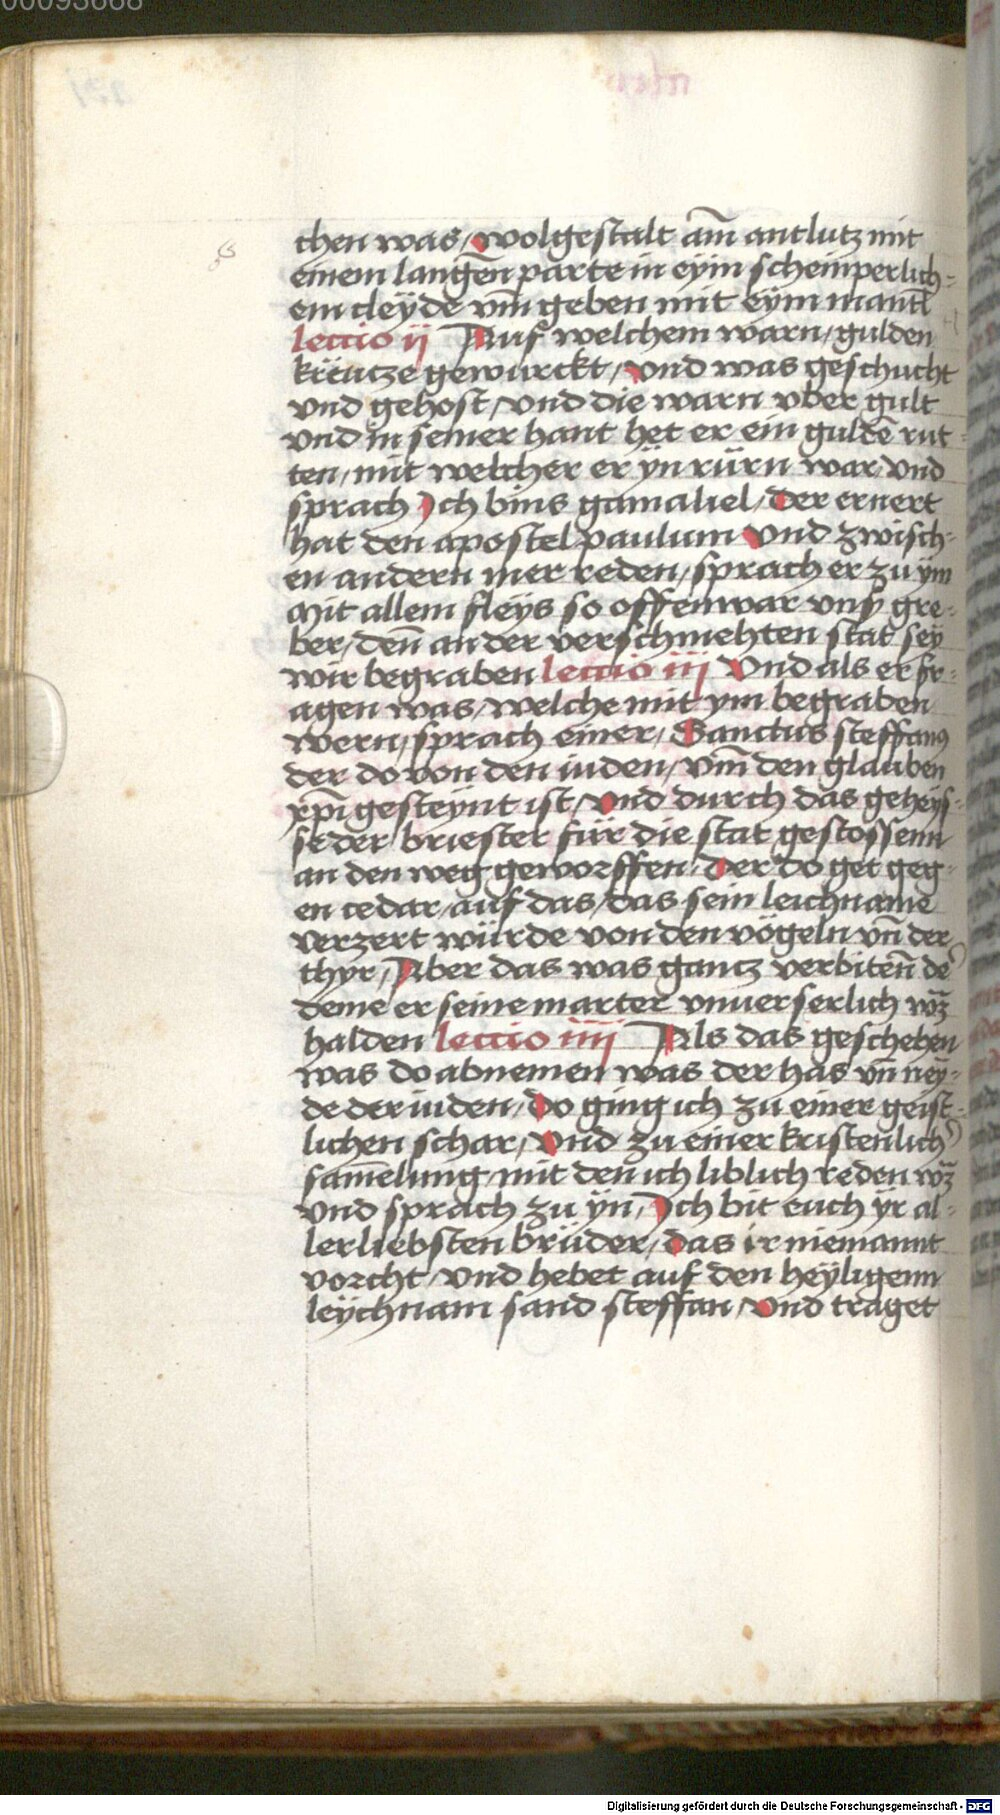 00093668
chen was/ wolgestalt am̄ antlutz mit
einem langen̄ parte in eyïn scheinperlich-
em cleÿde vm̄ geben mit eÿm mantl
lectio ij Auf welchem warn/ gulden
kreutze gewurckt/ vnd was geschucht
vnd gehost/ vnd die warn vber gult
vnd in seiner hant het er ein guldē rut-
ten/ mit welcher er ÿn rürn war/ vnd
sprach Ich bins gamaliel/ der ernert
hat den apostel paulum vnd zwisch-
en andern mer reden/ sprach er zu ÿm
Mit allem fleÿs so offenwar vnß gre-
ber/ den̄ an der verschmehten stat seÿ
wir begraben lectio iij Vnd als er fr-
agen was/ welche mit ym begraben
wern/ sprach einer/ Sanctus steffanꝰ
der do von den iuden/ vm̄ den glauben
xp̄i gesteÿnt ist/ vnd durch das geheÿs-
se der briester für die stat gestossenn
an den weg geworffen/ der do get geg-
en cedar/ auf das/ das sein leichname
verzert würde von den vögeln vn̄ der
thyr/ Aber das was gantz verbiten̄ de
deme er seine marter vnuerserlich wz̄
halden lectio iiij Als das geschehen
was do abnemen was der has vn̄ neÿ-
de der iuden/ do ging ich zu einer geist-
lichen schar/ vnd zu einer kristenlich
sam̄elung/ mit den̄ ich liblich reden wz̄
vnd sprach zu ÿn/ Ich bit euch ÿr al-
lerliebsten brüder/ das ir niemannt
vorcht/ vnd hebet auf den heÿligenn
leÿchnam sand steffan/ vnd traget
Digitalisierung gefördert durch die Deutsche Forschungsgemeinschaft - DFG